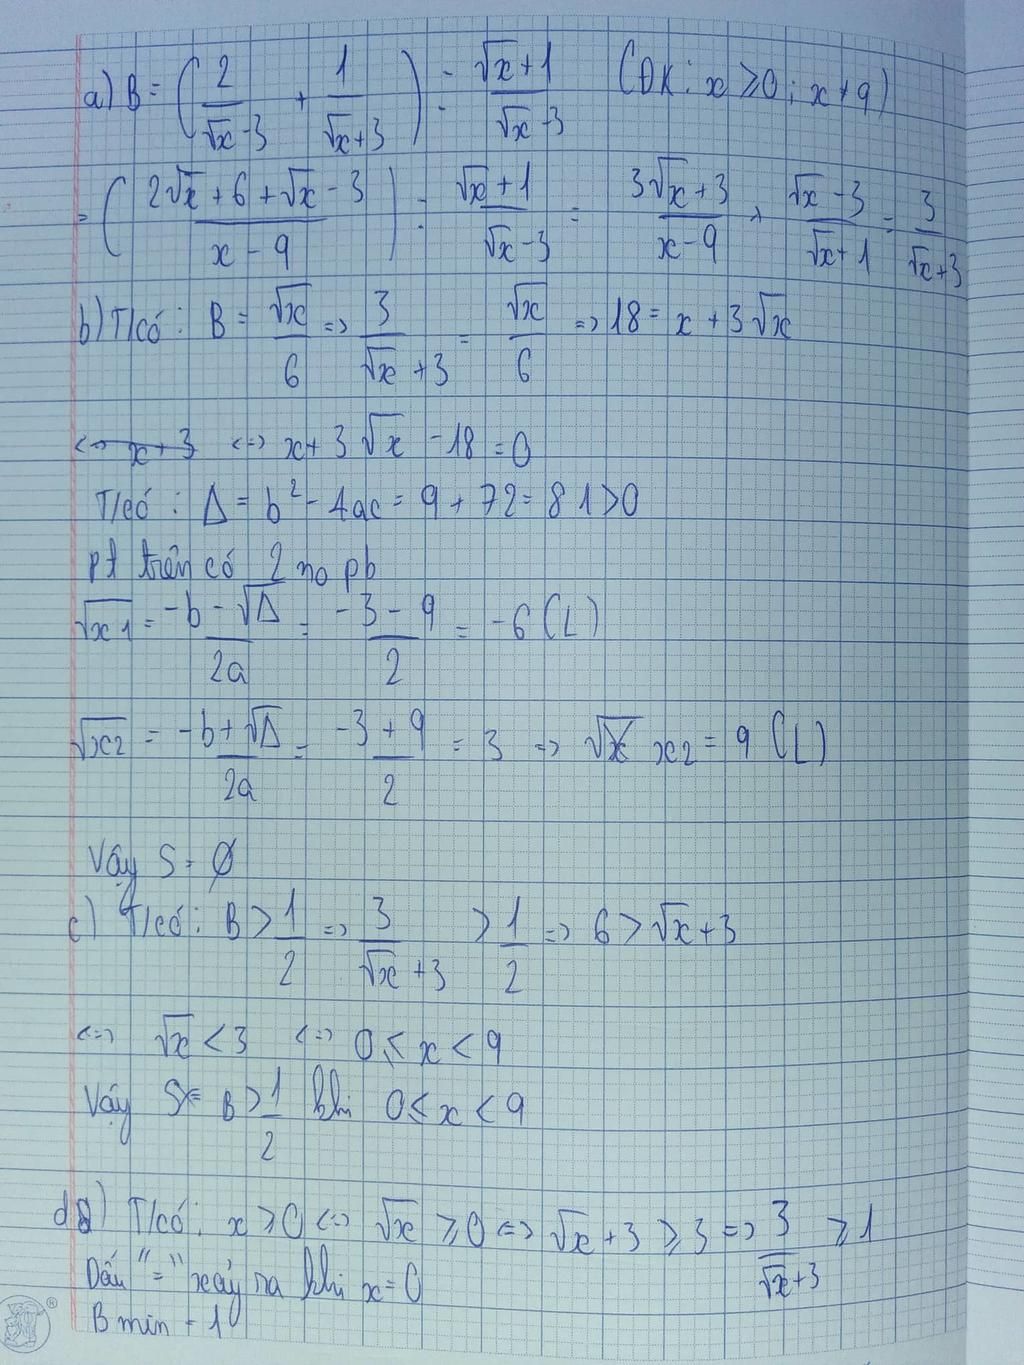 a) B = (2/(√x-3) + 1/(√x+3)) : (√x+1)/(√x-3) (ĐK: x ≥ 0; x ≠ 9)
= ((2√x + 6 + √x - 3)/(x - 9)) : (√x + 1)/(√x - 3) = (3√x + 3)/(x - 9) × (√x - 3)/(√x + 1) = 3/(√x + 3)
b) T/có: B = √x/6 => 3/(√x + 3) = √x/6 => 18 = x + 3√x
<=> x + 3 <=> x + 3√x - 18 = 0
T/có: Δ = b² - 4ac = 9 + 72 = 81 > 0
pt trên có 2 no pb
√x1 = (-b - √Δ)/2a = (-3 - 9)/2 = -6 (L)
√x2 = (-b + √Δ)/2a = (-3 + 9)/2 = 3 => √x x2 = 9 (L)
Vậy S = Ø
c) T/có: B > 1/2 => 3/(√x + 3) > 1/2 => 6 > √x + 3
<=> √x < 3 <=> 0 ≤ x < 9
Vậy S = B > 1/2 khi 0 ≤ x < 9
d) T/có: x ≥ 0 <=> √x ≥ 0 <=> √x + 3 ≥ 3 => 3/(√x + 3) ≥ 1
Dấu "=" xảy ra khi x = 0
B min = 1
®